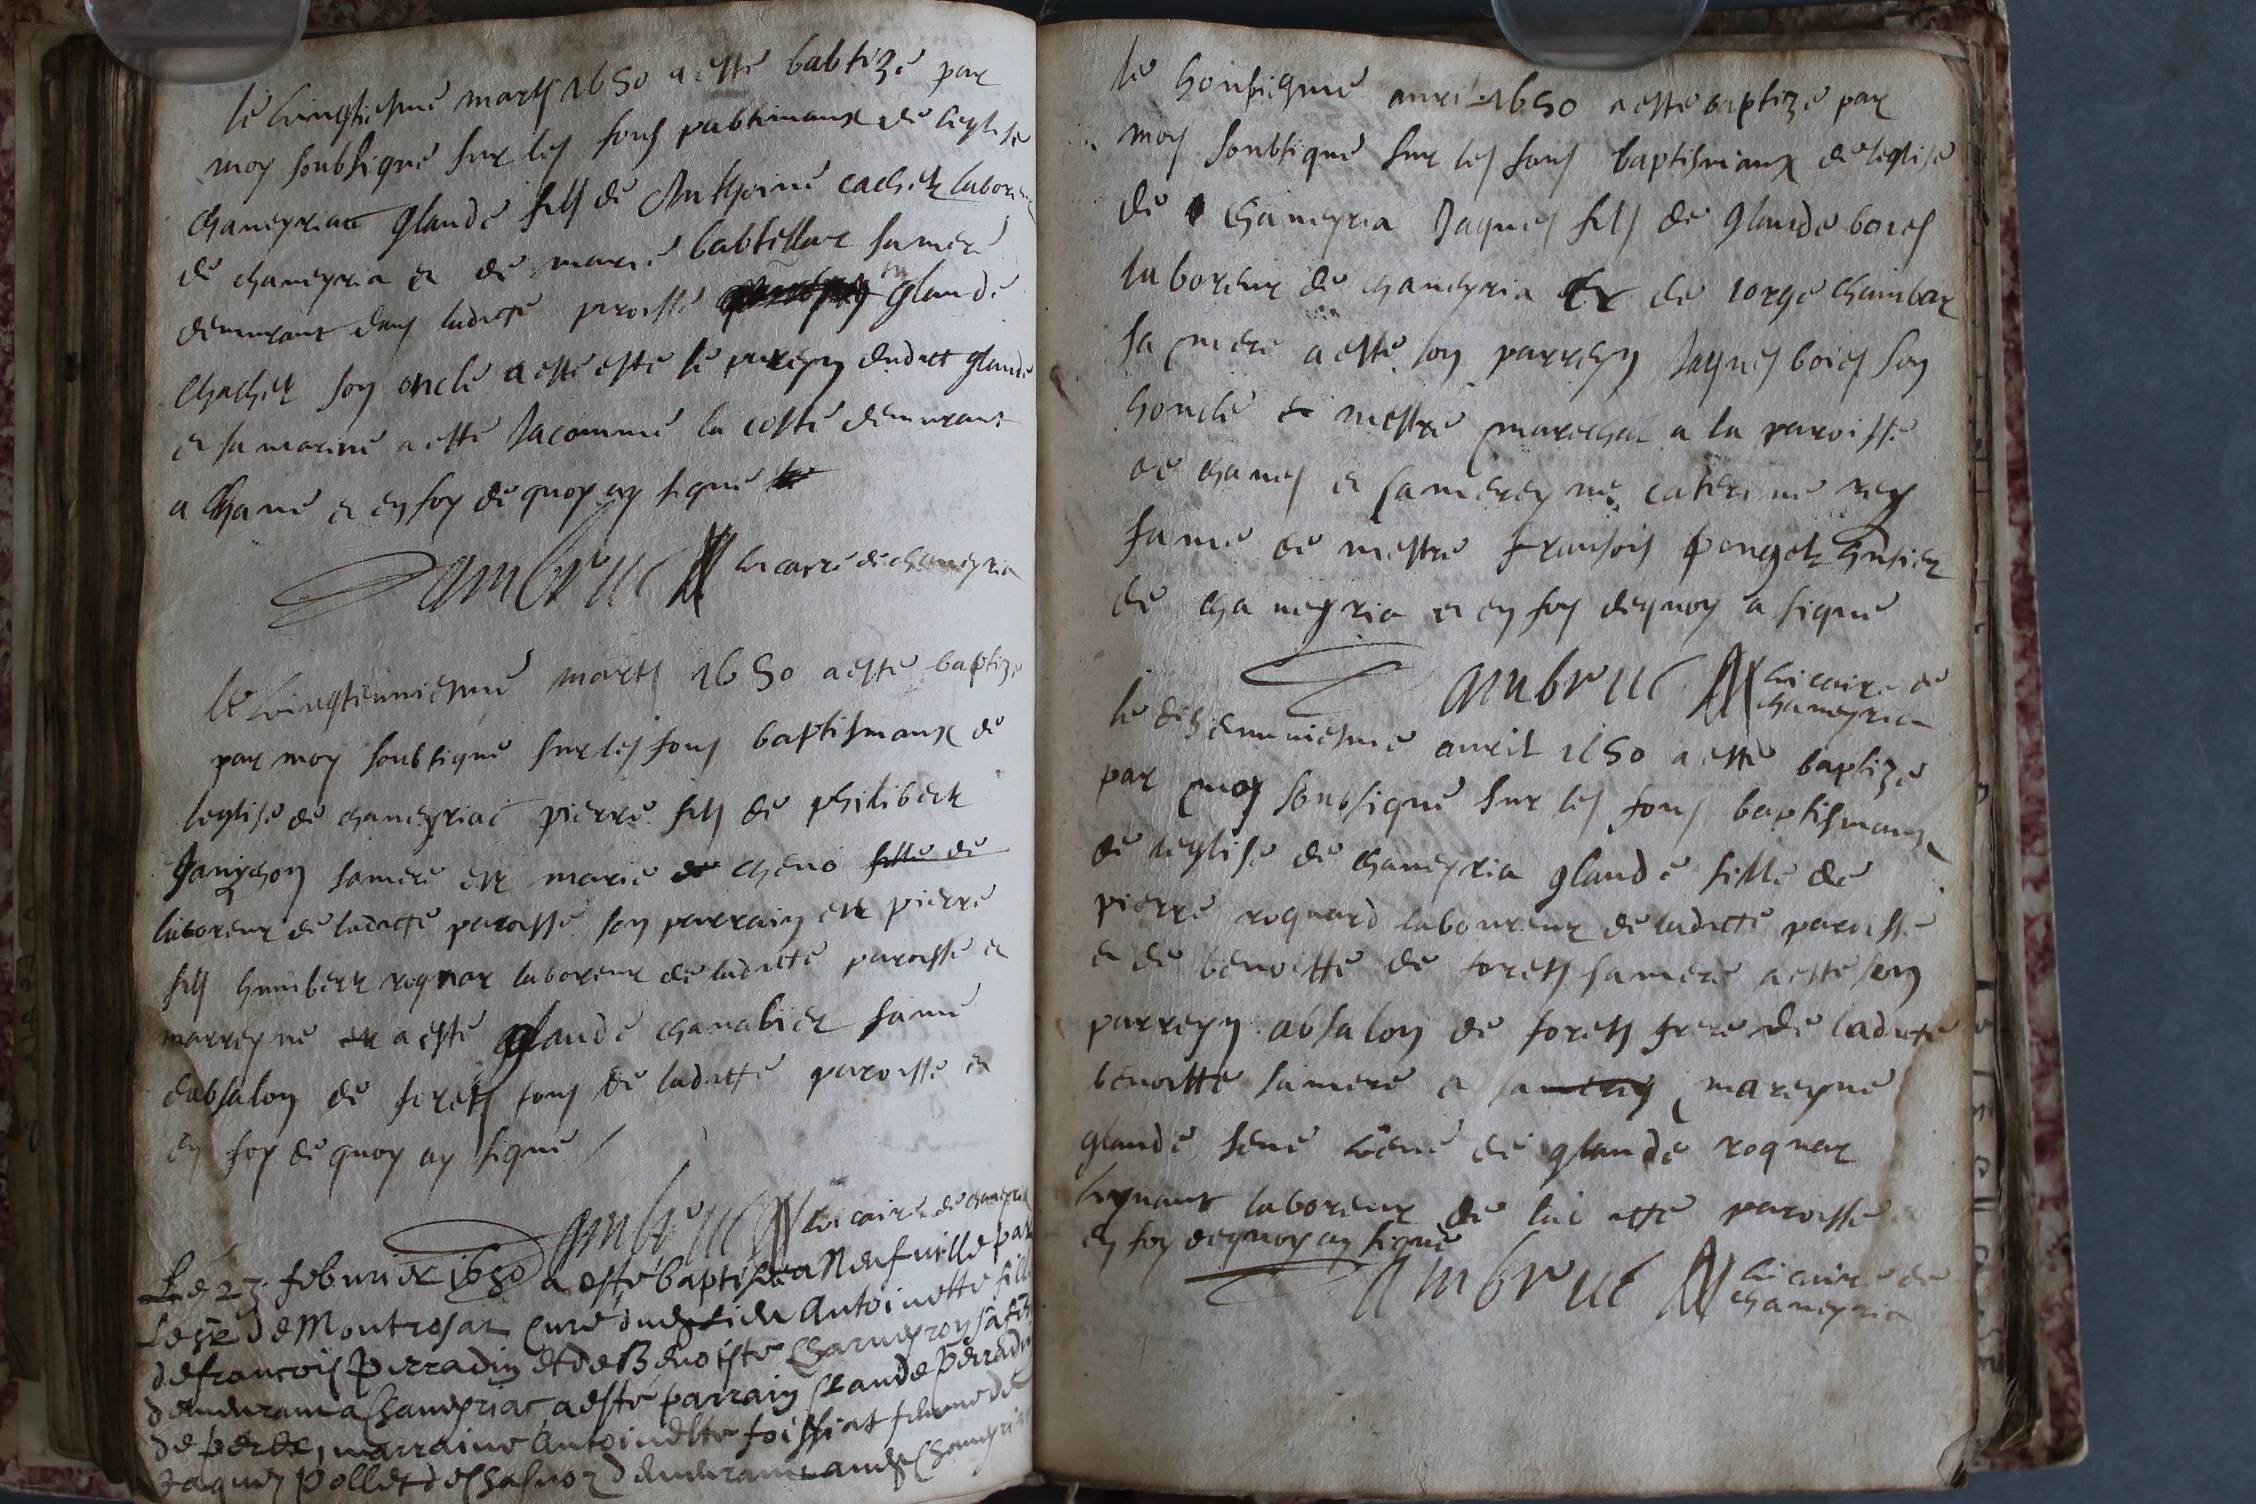 le vingtiesme mars 1650 a esté babtizé par
moy soubsigné sur les fons pabtimaux de leglise
chaneyriat glaude fils de Anthoine cachet labore
de chaneyria et de marie babtellar sa mere
demurant dens ladicte paroisse glaude
chachet son oncle a esté esté le pareyn dudict glaude
et sa marine a esté Jacomme la coste demurant
a Chane et en foy de quoy ay signé
Jambrut vicarre de chaneyria
le vingtienniesme mars 1650 a esté baptizé
par moy soubsigné sur les fons baptismaux de
leglize de chaneyriac pierre fils de philibert
sa mere est marie cheno fille de
laboreur de ladicte paroisse son parrain est pierre
fils humbert roqnar laboreur de ladicte paroisse et
marreyne a esté glaude chanabier fame
dabsalon de forets tous de ladicte paroisse et
en foy de quoy ay signé
Jambrut vicaire de chaneyria
Le 23 februrier 1650 a esté baptisée a Neufville par
Le sr de Montrosat curé dud lieu Antoinette fille
de francois Perradin et de Benoiste sa fe
demurant a Chaneyriac, a esté parrain Claude Perradin
de marraine Antoinette foissiat femme de
Jaques Pollet de demurant aud Chaneyria
le honsiesme avri 1650 a esté baptizé par
moy soubsigné sur les fons baptismaux de leglise
de chaneyria Jaques fils de glaude boies
laboreur de chaneyria et de lorge chambar
sa mere a esté son parreyn Jaques boies son
honcle et mestre marechal a la paroisse
de chanes et sa mereyne caterine rey
fame de mestre fransois ponget husier
de chaneyria et en foy dequoy a signé
Jambrut vicaire de
chaneyria
le diseneuviesme avril 1650 a esté baptizé
par moy soubsigné sur les fons baptismaux
de leglise de chaneyria glaude fille de
pierre roquard laboureur de ladicte paroisse
et de benoitte de forets sa mere a esté son
parreyn absalon de forets frere de ladicte
benoitte sa mere et sa mareyne
glaude veve de glaude roquar
viquant laboreur de ladicte paroisse
en foy dequoy ay signé
Jambrut vicaire de
chaneyria